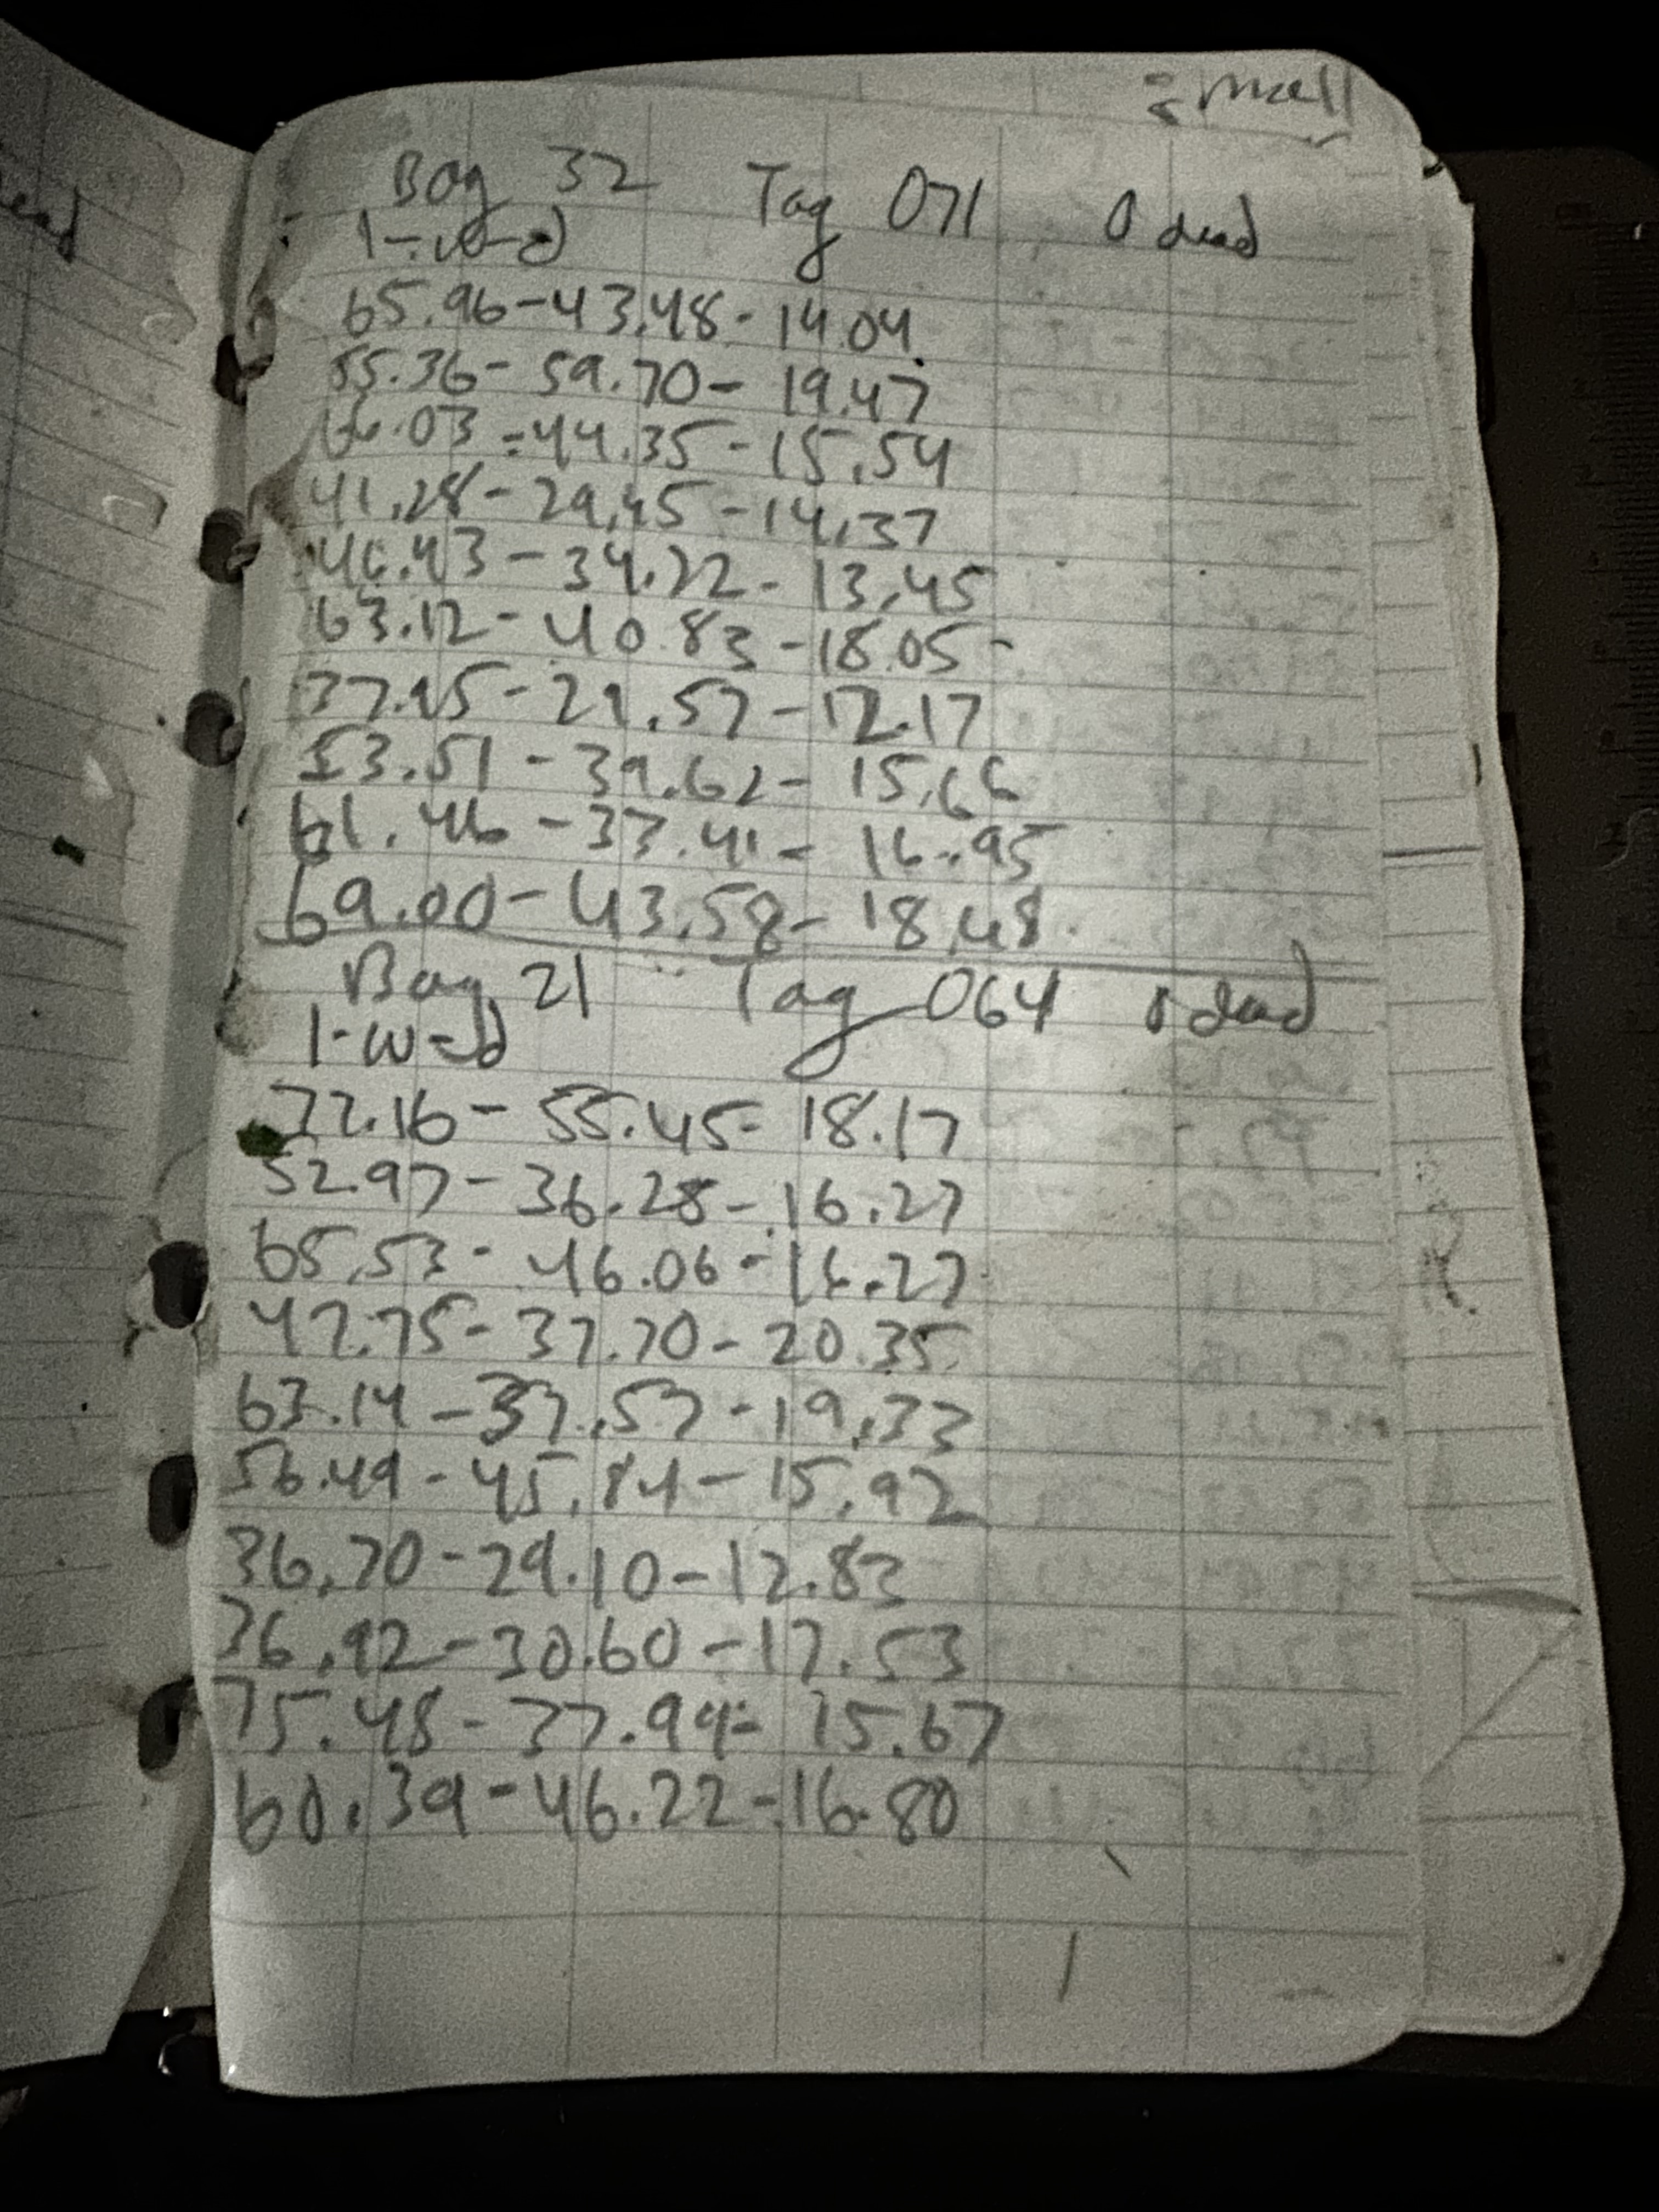 small
Bag 32 Tag 071 0 dead
l-w-d
65.96-43.48-14.04
55.36-59.70-19.47
66.03-44.35-15.54
41.28-29.45-14.37
34.22-13.45
63.12-40.83-18.05-
29.57-12.17
53.51-39.62-15.66
61.46-37.41-16.95
69.00-43.58-18.48
Bag 21 Tag 064 0 dead
l-w-d
77.16-55.45-18.17
52.97-36.28-16.27
65.53-46.06-16.27
47.75-37.70-20.35
63.14-37.57-19.33
56.49-45.84-15.92
36.70-29.10-12.83
36.92-30.60-17.53
75.48-37.94-15.67
60.39-46.22-16.80